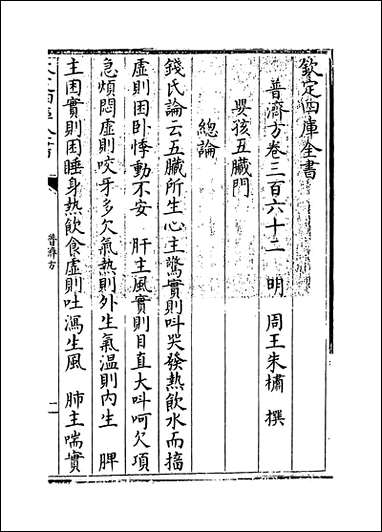 欽定四庫全書
普濟方卷三百六十二 明 周王朱橚 撰
嬰孩五臟門
總論
錢氏論云五臟所生心主驚實則呌哭發熱飲水而搐
虛則困卧悸動不安 肝主風實則目直大呌呵欠項
急煩悶虛則咬牙多欠氣熱則外生氣温則内生 脾
主困實則困睡身熱飲食虛則吐瀉生風 肺主喘實
普濟方
一